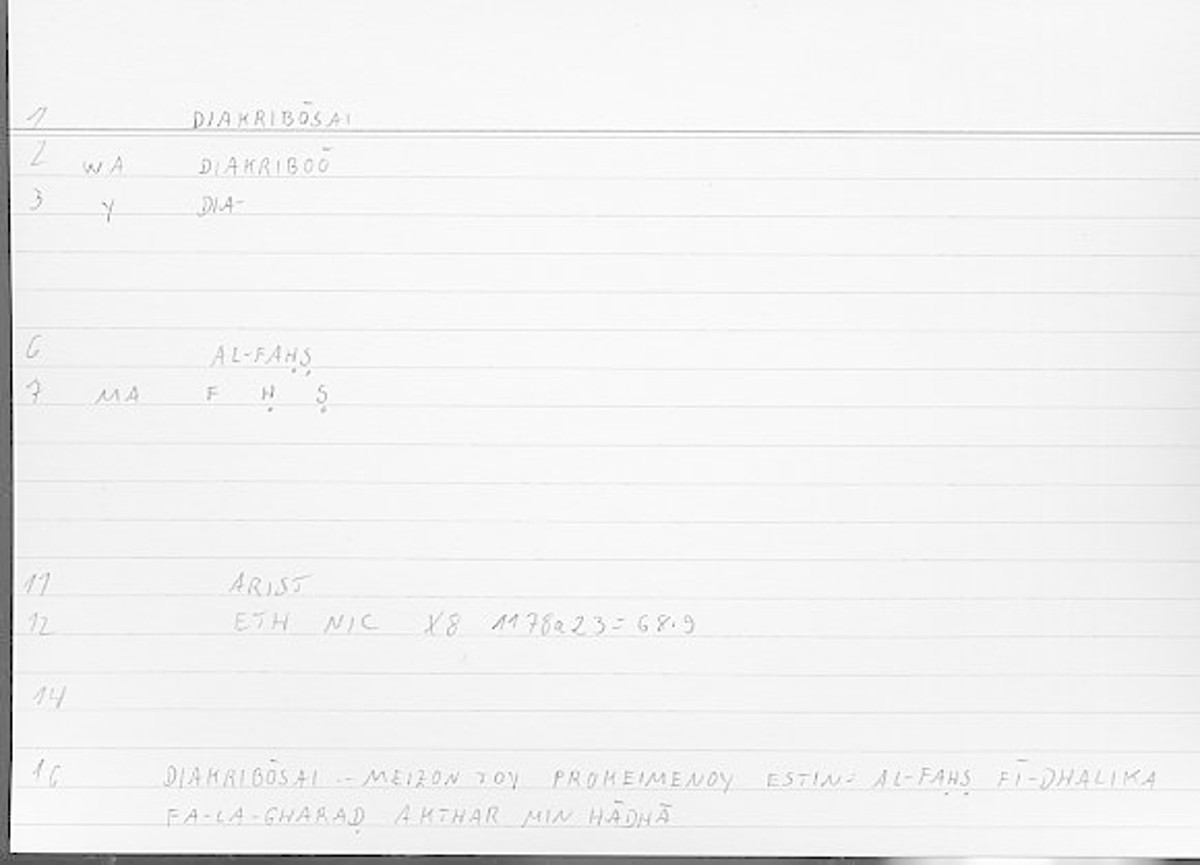 1 DIAKRIBŌSAI
2 WA DIAKRIBOŌ
3 Y DIA-
6 AL-FAḤṢ
7 MA F Ḥ Ṣ
11 ARIST
12 ETH NIC X8 1178a23=68.9
14
16 DIAKRIBŌSAI -- MEIZON TOY PROKEIMENOY ESTIN= AL-FAḤṢ FĪ-DHALIKA
FA-LA-GHARAḌ AKTHAR MIN HĀDHĀ